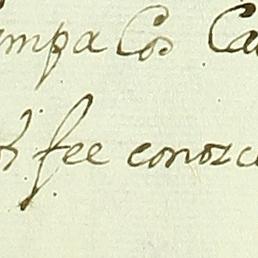 ampa Cos Ca
fee conozc